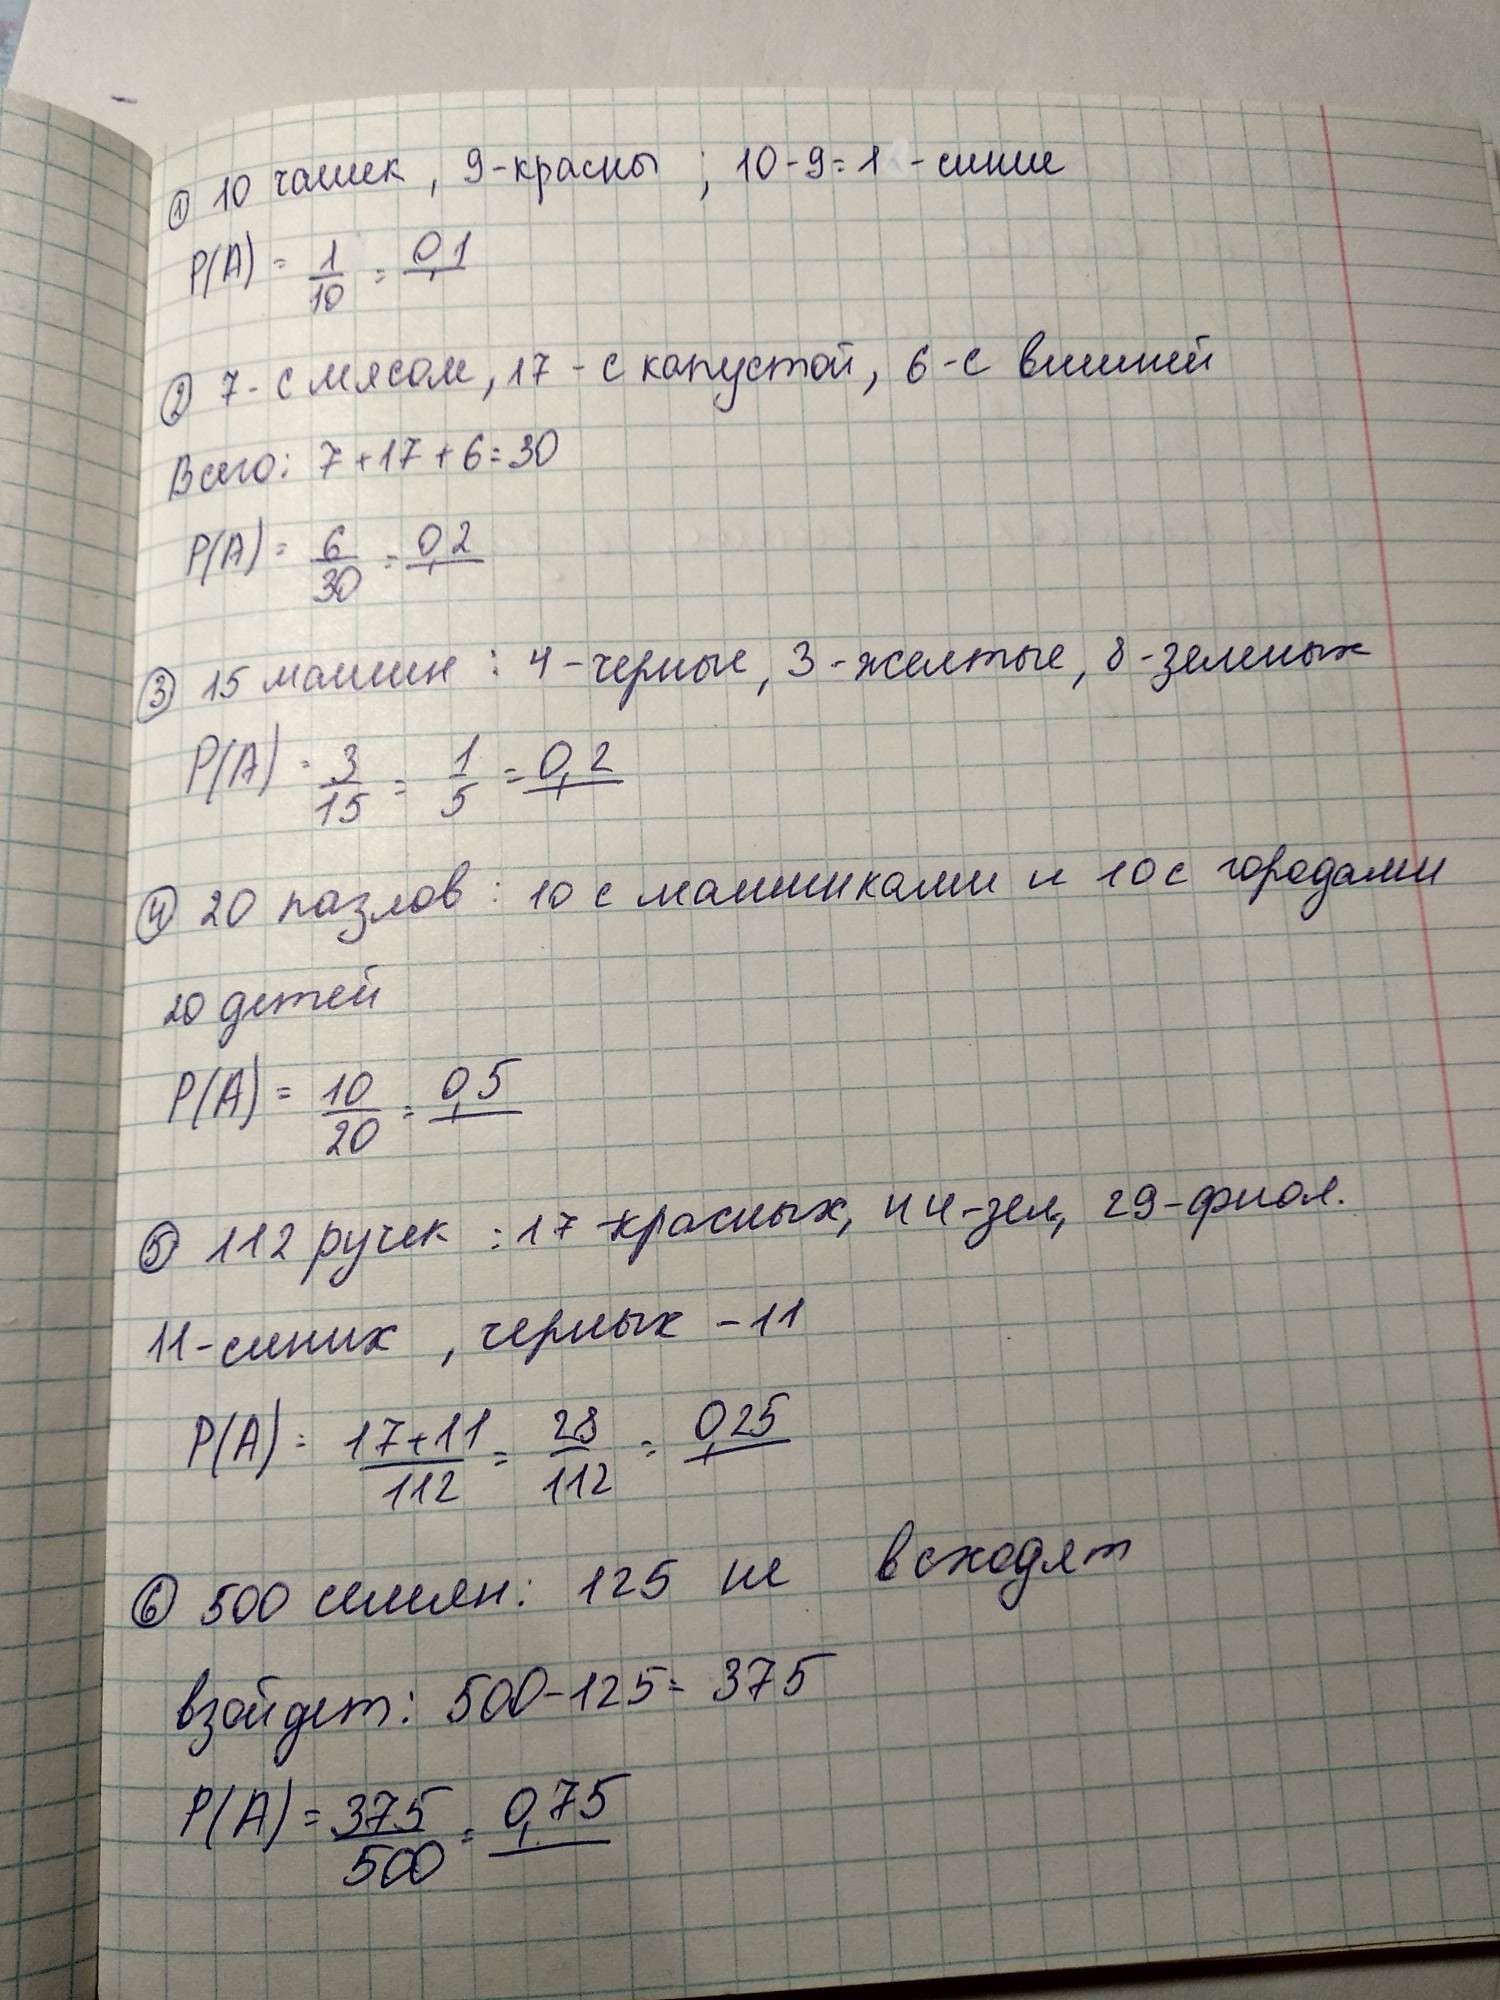 ① 10 чашек, 9-красны; 10-9=1 -синие
P(A) = 1/10 = 0,1
② 7-с мясом, 17-с капустой, 6-с вишней
Всего: 7+17+6=30
P(A) = 6/30 = 0,2
③ 15 машин: 4-черные, 3-желтые, 8-зеленых
P(A) = 3/15 = 1/5 = 0,2
④ 20 пазлов: 10 с машинками и 10 с городами
20 детей
P(A) = 10/20 = 0,5
⑤ 112 ручек: 17-красных, 44-зел, 29-фиол.
11-синих, черных -11
P(A) = 17+11/112 = 28/112 = 0,25
⑥ 500 семян: 125 не всходят
взойдет: 500-125= 375
P(A) = 375/500 = 0,75